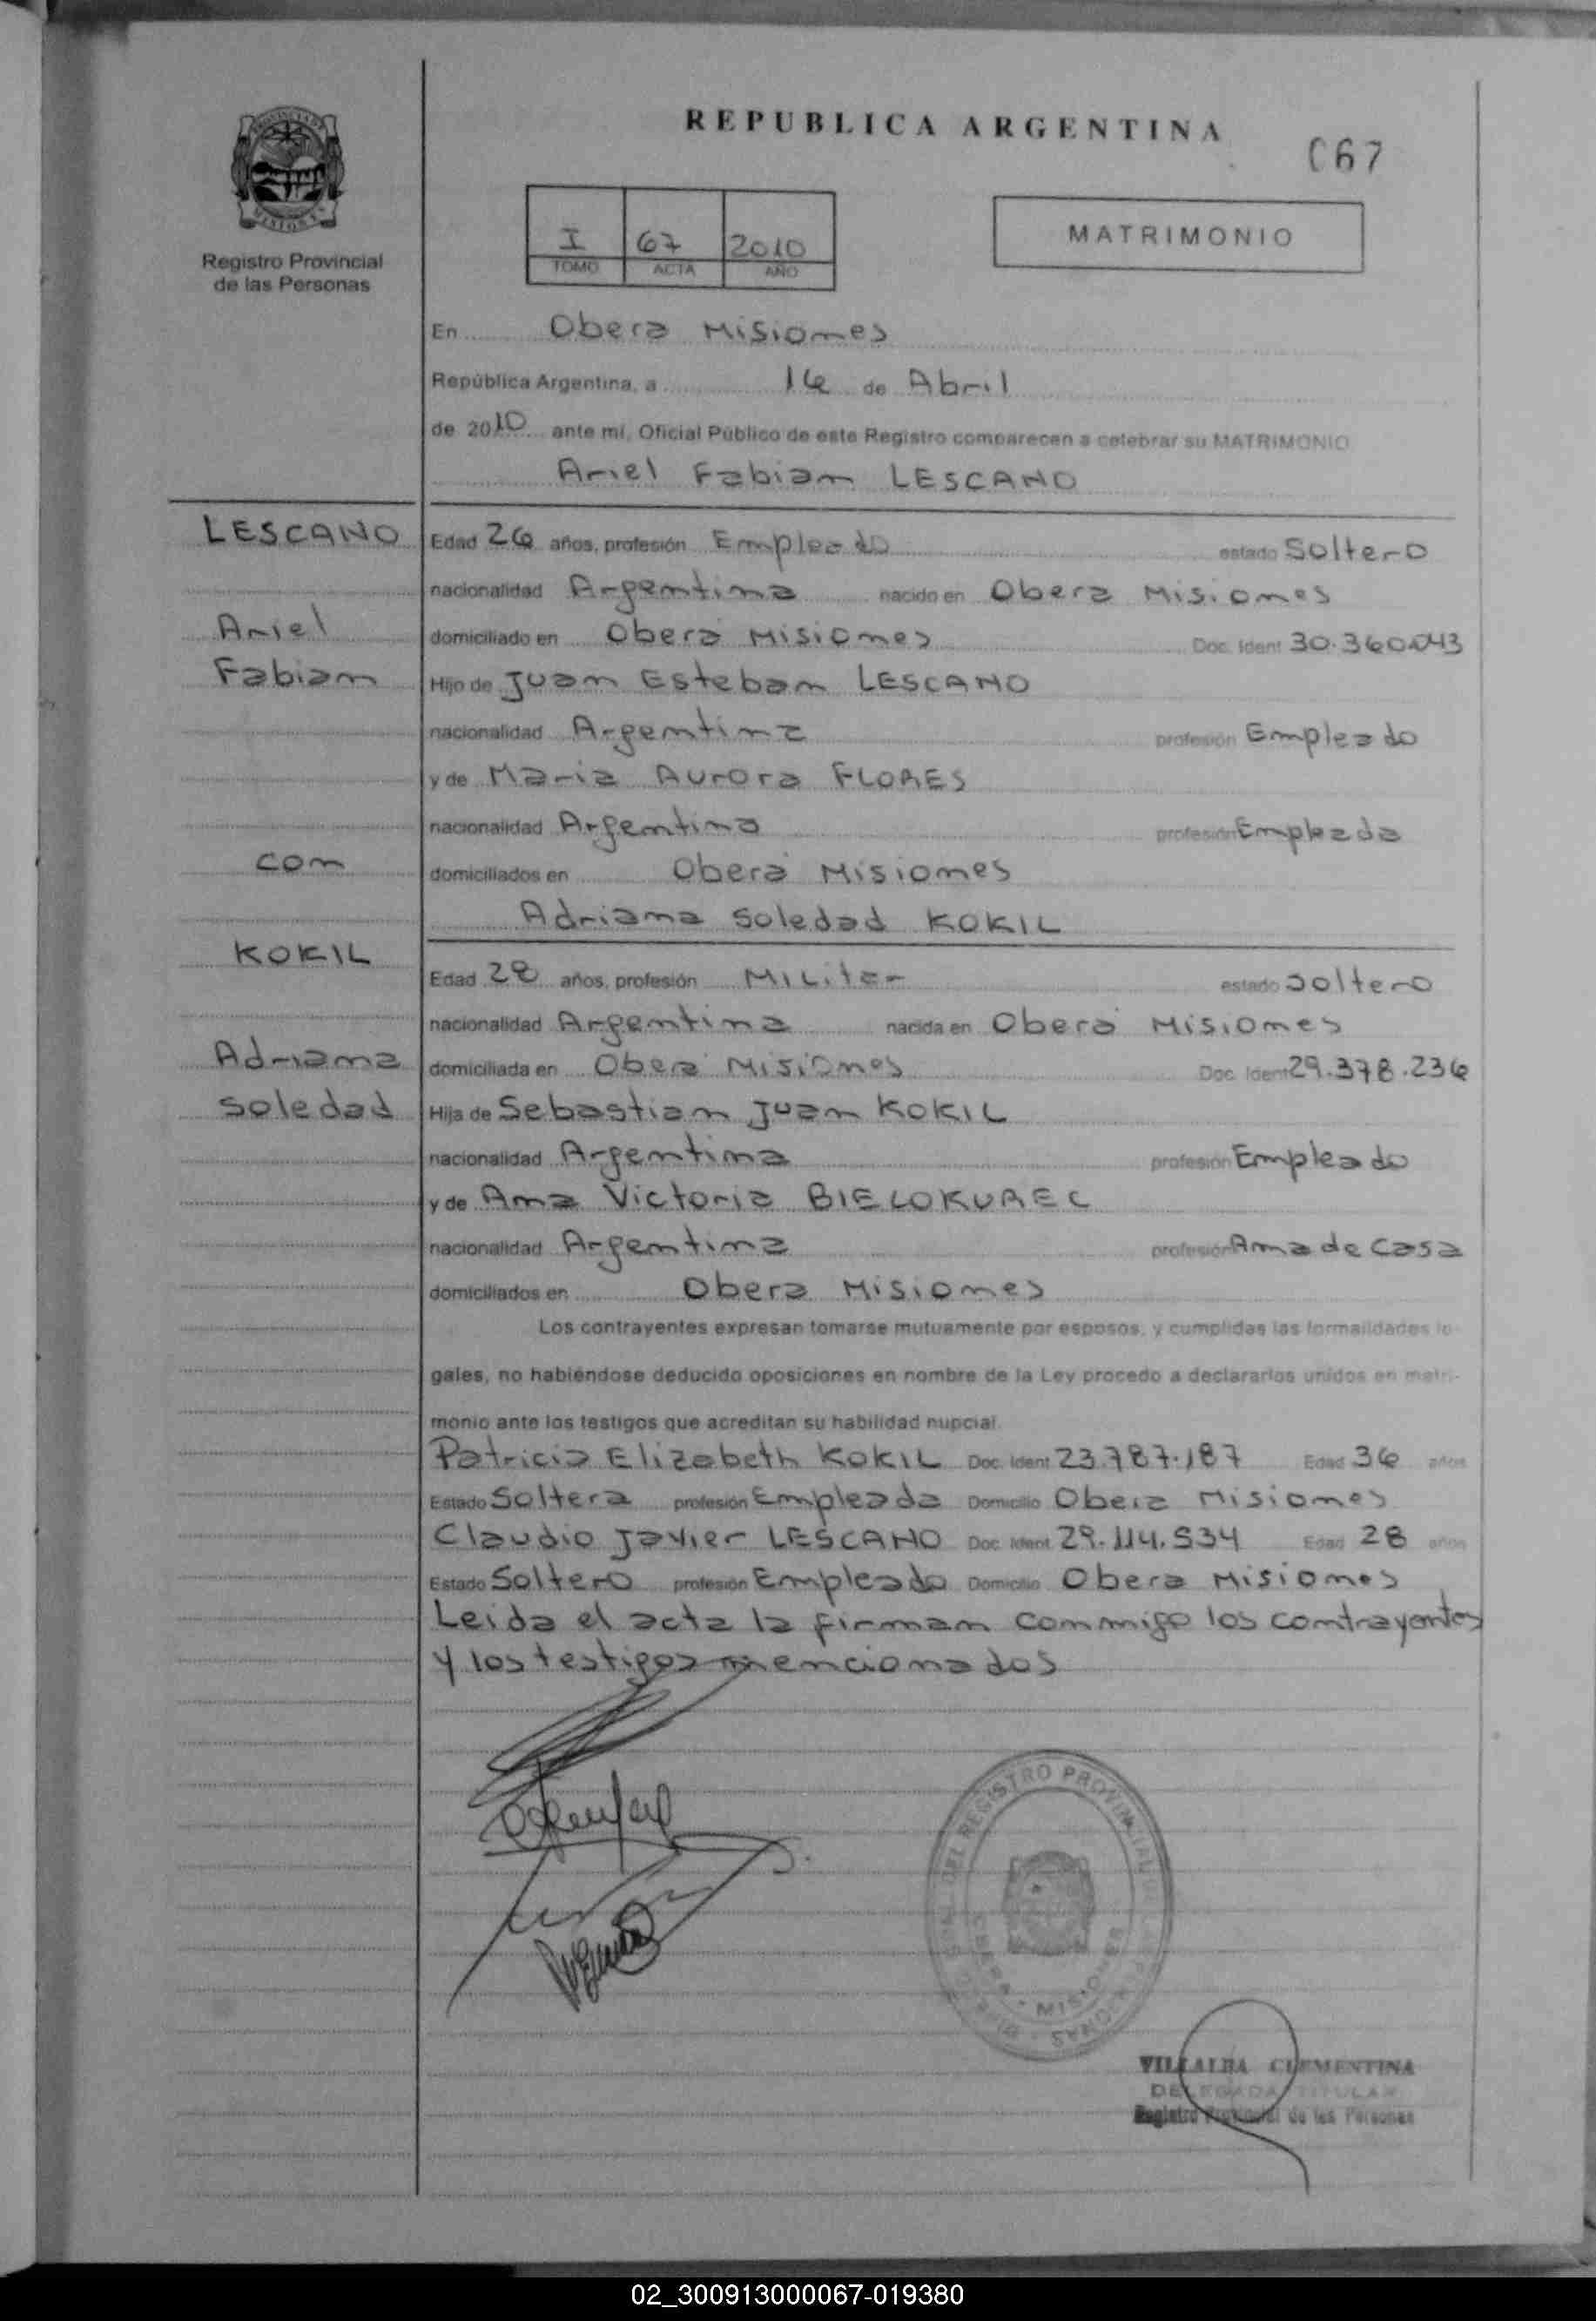 REPUBLICA ARGENTINA
C67
Registro Provincial
de las Personas
I 67 2010
TOMO ACTA AÑO
MATRIMONIO
En Obera Misiones
República Argentina, a 16 de Abril
de 2010 ante mí, Oficial Público de este Registro comparecen a celebrar su MATRIMONIO
Ariel Fabian LESCANO
LESCANO
Ariel
Fabian
con
KOKIL
Adriana
Soledad
Edad 26 años, profesión Empleado estado Soltero
nacionalidad Argentina nacido en Obera Misiones
domiciliado en Oberá Misiones Doc. Ident 30.360.043
Hijo de Juan Esteban LESCANO
nacionalidad Argentina profesión Empleado
y de Maria Aurora FLORES
nacionalidad Argentina profesión Empleada
domiciliados en Oberá Misiones
Adriana Soledad KOKIL
Edad 28 años, profesión Militar estado Soltero
nacionalidad Argentina nacida en Oberá Misiones
domiciliada en Oberá Misiones Doc. Ident 29.378.236
Hija de Sebastian Juan KOKIL
nacionalidad Argentina profesión Empleado
y de Ana Victoria BIELOKUREC
nacionalidad Argentina profesión Ama de Casa
domiciliados en Obera Misiones
Los contrayentes expresan tomarse mutuamente por esposos, y cumplidas las formalidades le-
gales, no habiéndose deducido oposiciones en nombre de la Ley procedo a declararlos unidos en matri-
monio ante los testigos que acreditan su habilidad nupcial.
Patricia Elizabeth KOKIL Doc. Ident 23.787.187 Edad 36 años
Estado Soltera profesión Empleada Domicilio Obera Misiones
Claudio Javier LESCANO Doc. Ident 29.114.534 Edad 28 años
Estado Soltero profesión Empleado Domicilio Obera Misiones
Leida el acta la firman conmigo los contrayentes
y los testigos mencionados
DEL REGISTRO PROVINCIAL
MISIONES
VILLALBA CLEMENTINA
DELEGADA TITULAR
Registro Provincial de las Personas
02_300913000067-019380